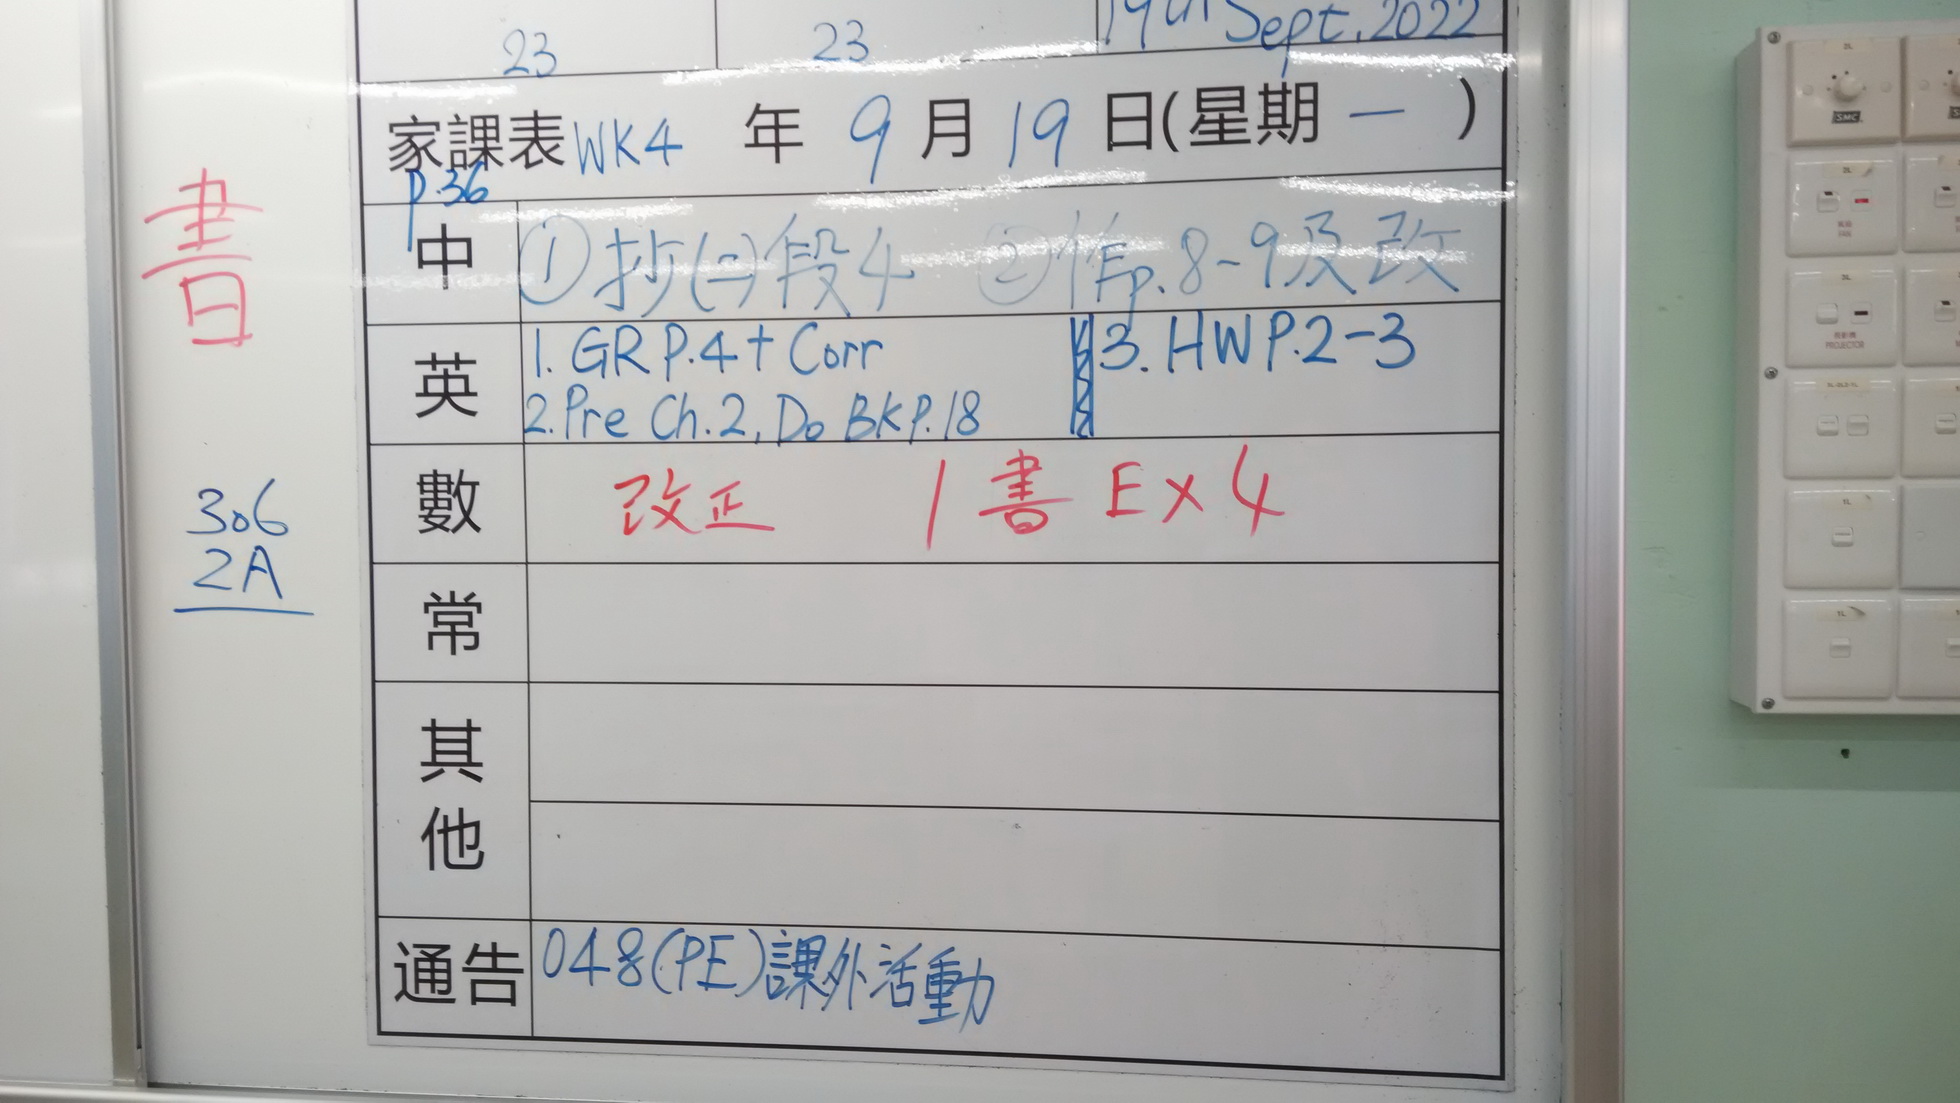 23 23 19th Sept. 2022
家課表 WK4 年 9 月 19 日(星期一)
P.36
書
中 ① 抄(二)段4 ② 作p.8-9及改
英 1. GR P.4 + Corr 3. HW P.2-3
2. Pre Ch.2, Do BK P.18
數 改正 1 書 Ex 4
306
2A
常
其他
通告 048(PE)課外活動
SMC
FAN
PROJECTOR